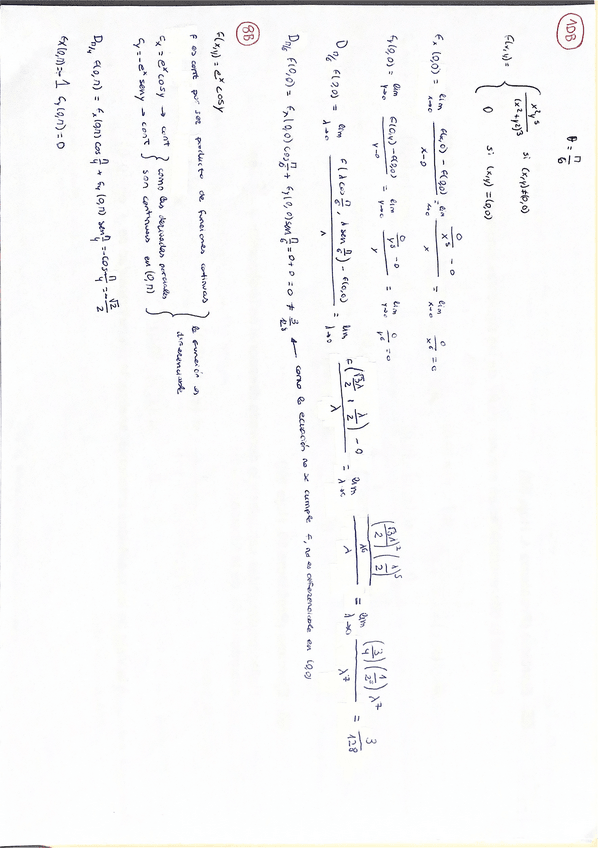 10B
θ = π/6
f(x,y) = { x²y⁵/(x²+y²)³ si (x,y)≠(0,0)
0 si (x,y)=(0,0)
fx(0,0) = lim x→0 (f(x,0) - f(0,0))/(x-0) = lim x→0 (0/x⁶ - 0)/x = lim x→0 0/x⁶ = 0
fy(0,0) = lim y→0 (f(0,y) - f(0,0))/(y-0) = lim y→0 (0/y⁶ - 0)/y = lim y→0 0/y⁶ = 0
Dπ/6 f(0,0) = lim λ→0 (f(λ cos π/6, λ sen π/6) - f(0,0))/λ = lim λ→0 (f(√3λ/2, λ/2) - 0)/λ = lim λ→0 ((√3λ/2)² (λ/2)⁵/λ⁶)/λ = lim λ→0 (3/4)(1/2⁵)λ⁷/λ⁷ = 3/128
Dπ/6 f(0,0) = fx(0,0) cos π/6 + fy(0,0) sen π/6 = 0+0 = 0 ≠ 3/128 ← como la ecuación no se cumple f, no es diferenciable en (0,0)
8B
f(x,y) = eˣ cos y
f es cont por ser producto de funciones continuas
fx = eˣ cos y → cont } como las derivadas parciales
fy = -eˣ sen y → cont } son continuas en (0,π) } la función es diferenciable
Dπ/4 f(0,π) = fx(0,π) cos π/4 + fy(0,π) sen π/4 = -cos π/4 = -√2/2
fx(0,π) = -1 fy(0,π) = 0